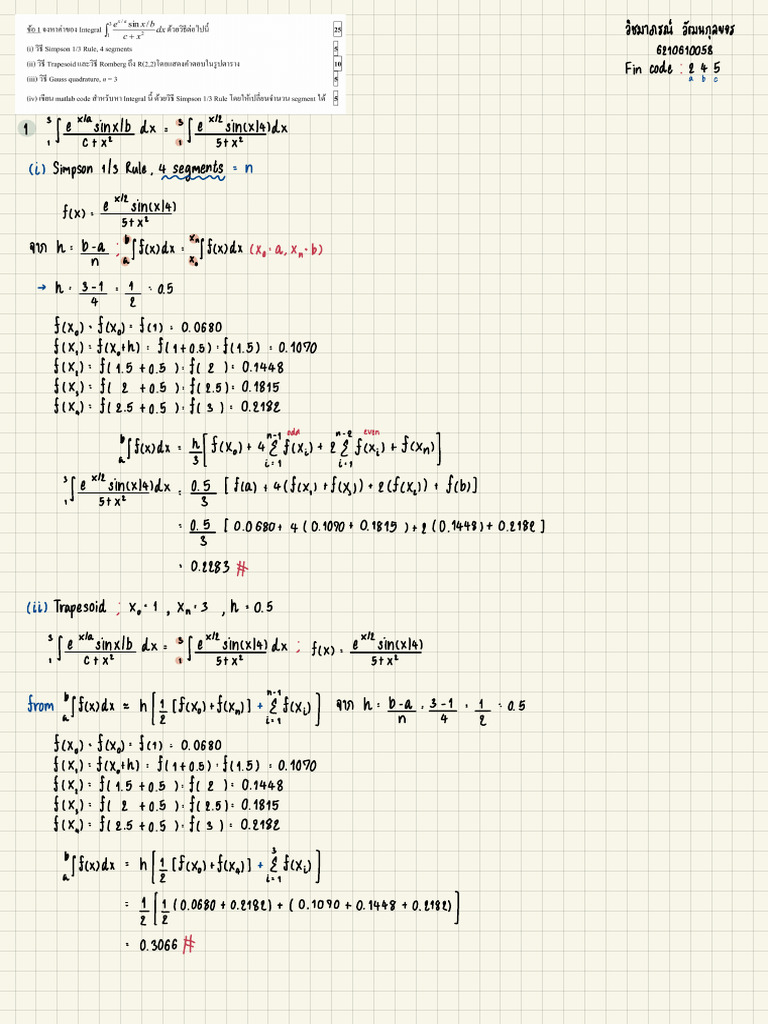 ข้อ 1 จงหาค่าของ Integral ∫₁³ (e^{x/a} sin x/b)/(c + x²) dx ด้วยวิธีต่อไปนี้ 25
(i) วิธี Simpson 1/3 Rule, 4 segments 5
(ii) วิธี Trapesoid และวิธี Romberg ถึง R(2,2)โดยแสดงคำตอบในรูปตาราง 10
(iii) วิธี Gauss quadrature, n = 3 5
(iv) เขียน matlab code สำหรับหา Integral นี้ ด้วยวิธี Simpson 1/3 Rule โดยให้เปลี่ยนจำนวน segment ได้ 5
6210610058
Fin code : 2 4 5
a b c
1 ∫₁³ (e^{x/a} sinx/b)/(c+x²) dx = ∫₁³ (e^{x/2} sin(x/4))/(5+x²) dx
(i) Simpson 1/3 Rule, 4 segments = n
f(x) = (e^{x/2} sin(x/4))/(5+x²)
จาก h = (b-a)/n ; ∫ₐᵇ f(x)dx = ∫_{x₀}^{xₙ} f(x)dx (x₀ = a, xₙ = b)
→ h = (3-1)/4 = 1/2 = 0.5
f(x₀) = f(x₀) = f(1) = 0.0680
f(x₁) = f(x₀+h) = f(1+0.5) = f(1.5) = 0.1070
f(x₂) = f(1.5+0.5) = f(2) = 0.1448
f(x₃) = f(2+0.5) = f(2.5) = 0.1815
f(x₄) = f(2.5+0.5) = f(3) = 0.2182
∫ₐᵇ f(x)dx = h/3 [f(x₀) + 4 Σ_{i=1}^{n-1} (odd) f(xᵢ) + 2 Σ_{i=1}^{n-2} (even) f(xᵢ) + f(xₙ)]
∫₁³ (e^{x/2} sin(x/4))/(5+x²) dx = 0.5/3 [f(a) + 4(f(x₁) + f(x₃)) + 2(f(x₂)) + f(b)]
= 0.5/3 [0.0680 + 4(0.1070 + 0.1815) + 2(0.1448) + 0.2182]
= 0.2283 #
(ii) Trapesoid ; x₀ = 1, xₙ = 3, h = 0.5
∫₁³ (e^{x/a} sinx/b)/(c+x²) dx = ∫₁³ (e^{x/2} sin(x/4))/(5+x²) dx ; f(x) = (e^{x/2} sin(x/4))/(5+x²)
from ∫ₐᵇ f(x)dx ≈ h[1/2 [f(x₀)+f(xₙ)] + Σ_{i=1}^{n-1} f(xᵢ)] จาก h = (b-a)/n = (3-1)/4 = 1/2 = 0.5
f(x₀) = f(x₀) = f(1) = 0.0680
f(x₁) = f(x₀+h) = f(1+0.5) = f(1.5) = 0.1070
f(x₂) = f(1.5+0.5) = f(2) = 0.1448
f(x₃) = f(2+0.5) = f(2.5) = 0.1815
f(x₄) = f(2.5+0.5) = f(3) = 0.2182
∫ₐᵇ f(x)dx = h[1/2 [f(x₀)+f(x₄)] + Σ_{i=1}^{3} f(xᵢ)]
= 1/2 [1/2 (0.0680 + 0.2182) + (0.1070 + 0.1448 + 0.2182)]
= 0.3066 #